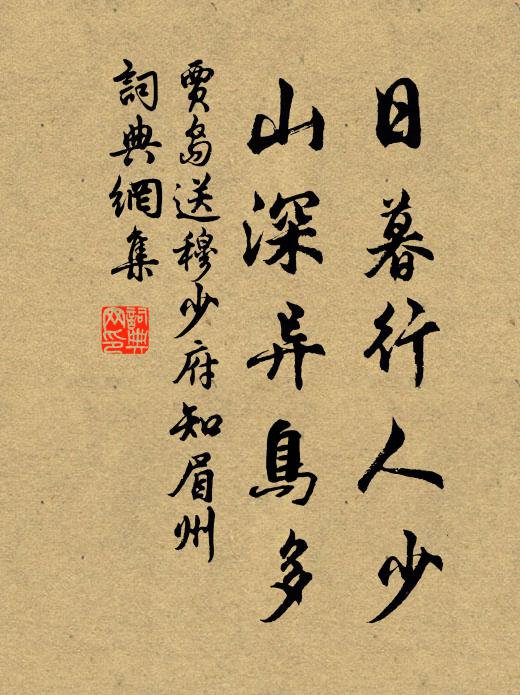 日暮行人少
山深异鳥多
賈島送穆少府知眉州
詞典網集
詞典
网印